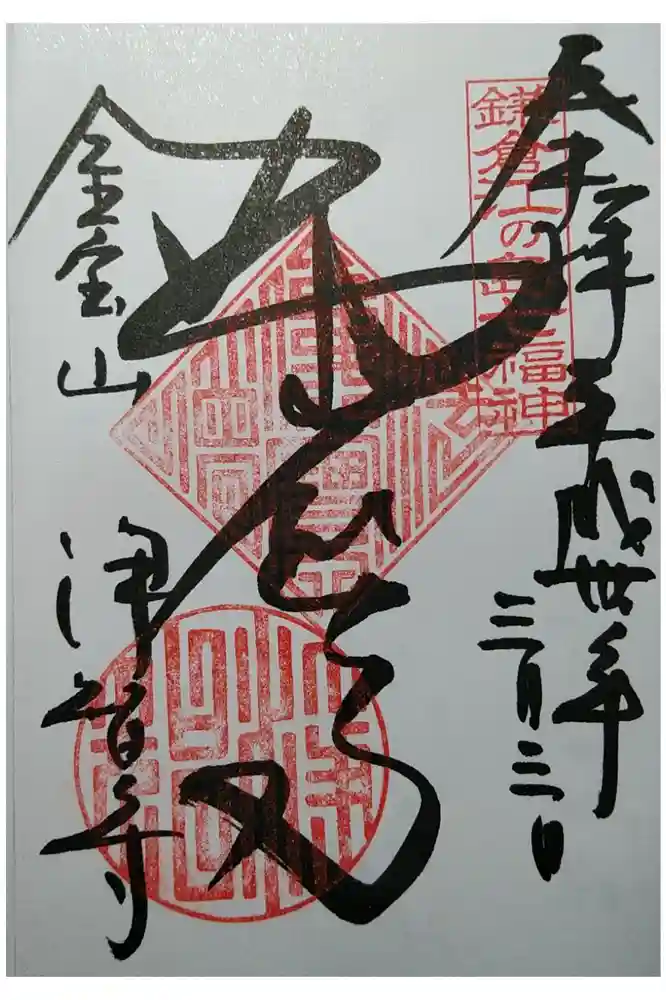 奉拝 平成丗年
三月三日
鎌倉江の島七福神
布袋尊
金宝山 浄智寺